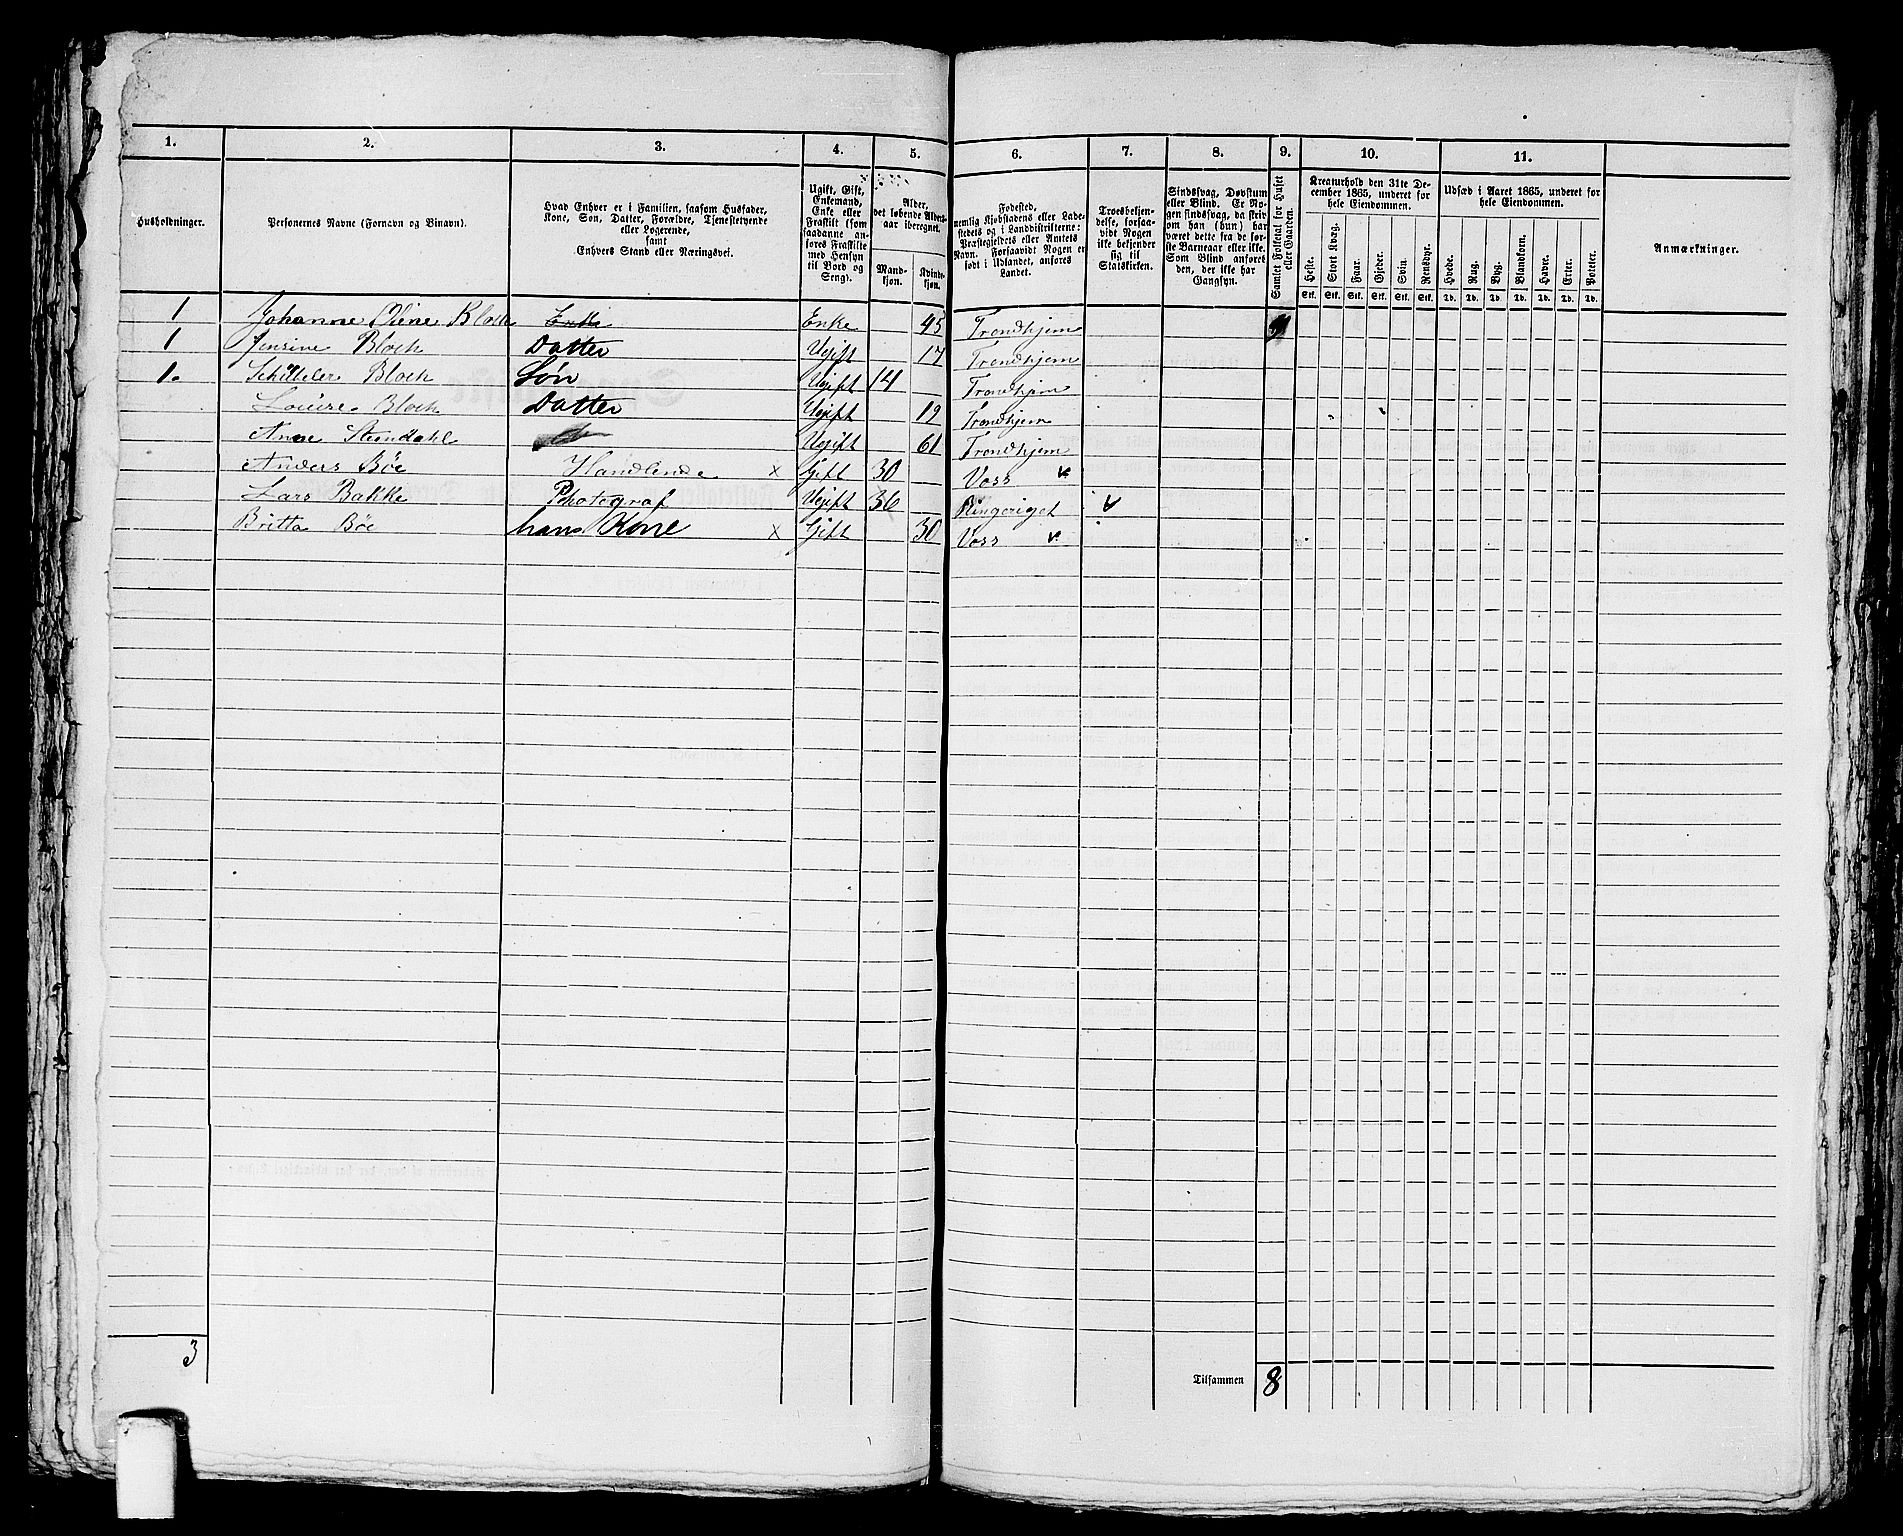 1. 2. 3. 4. 5. 6. 7. 8. 9. 10. 11.
Husholdninger.
Personernes Navne (Fornavn og Binavn).
Hvad Enhver er i Familien, saasom Husfader,
Kone, Søn, Datter, Forældre, Tjenestetyende
eller Logerende,
samt
Enhvers Stand eller Næringsvei.
Ugift, Gift,
Enkemand,
Enke eller
Fraskilt (som
saadanne an-
føres Fraskilte
med Hensyn
til Bord og
Seng).
Alder,
det løbende Alders-
aar iberegnet.
Mand-
kjøn.
Kvinde-
kjøn.
Fødested,
nemlig Kjøbstadens eller Lade-
stedets og i Landdistrikterne:
Præstegjeldets eller Amtets
Navn. Forsaavidt Nogen er
født i Udlandet, anføres
Landet.
Troesbekjen-
delse, forsaa-
vidt Nogen
ikke bekjender
sig til
Statskirken.
Sindssvag, Døvstum
eller Blind. Er No-
gen sindssvag, da skriv
om han (hun) har
været dette fra de før-
ste Barneaar eller ikke.
Som Blind anføres
den, der ikke har
Gangsyn.
Samlet Folketal for Huset
eller Gaarden.
Kreaturhold den 31te De-
cember 1865, underet for
hele Eiendommen.
Heste. Stort Kvæg. Faar. Gjeder. Svin. Rensdyr.
Stk. Stk. Stk. Stk. Stk. Stk.
Udsæd i Aaret 1865, underet for
hele Eiendommen.
Hvede. Rug. Byg. Blandkorn. Havre. Erter. Poteter.
Td. Td. Td. Td. Td. Td. Td.
Anmærkninger.
1 Johanne Oline Bloch Enke Enke 45 Trondhjem
1 Jensine Bloch Datter Ugift 17 Trondhjem
1. Bloch Søn Ugift 14 Trondhjem
Louise Bloch Datter Ugift 19 Trondhjem
Anne Stendahl Ugift 61 Trondhjem
Anders Böe Handlende x Gift 30 Voss v
Lars Bakke Photograf Ugift 36 Ringeriget v
Britta Böe hans Kone x Gift 30 Voss v
3 Tilsammen 8